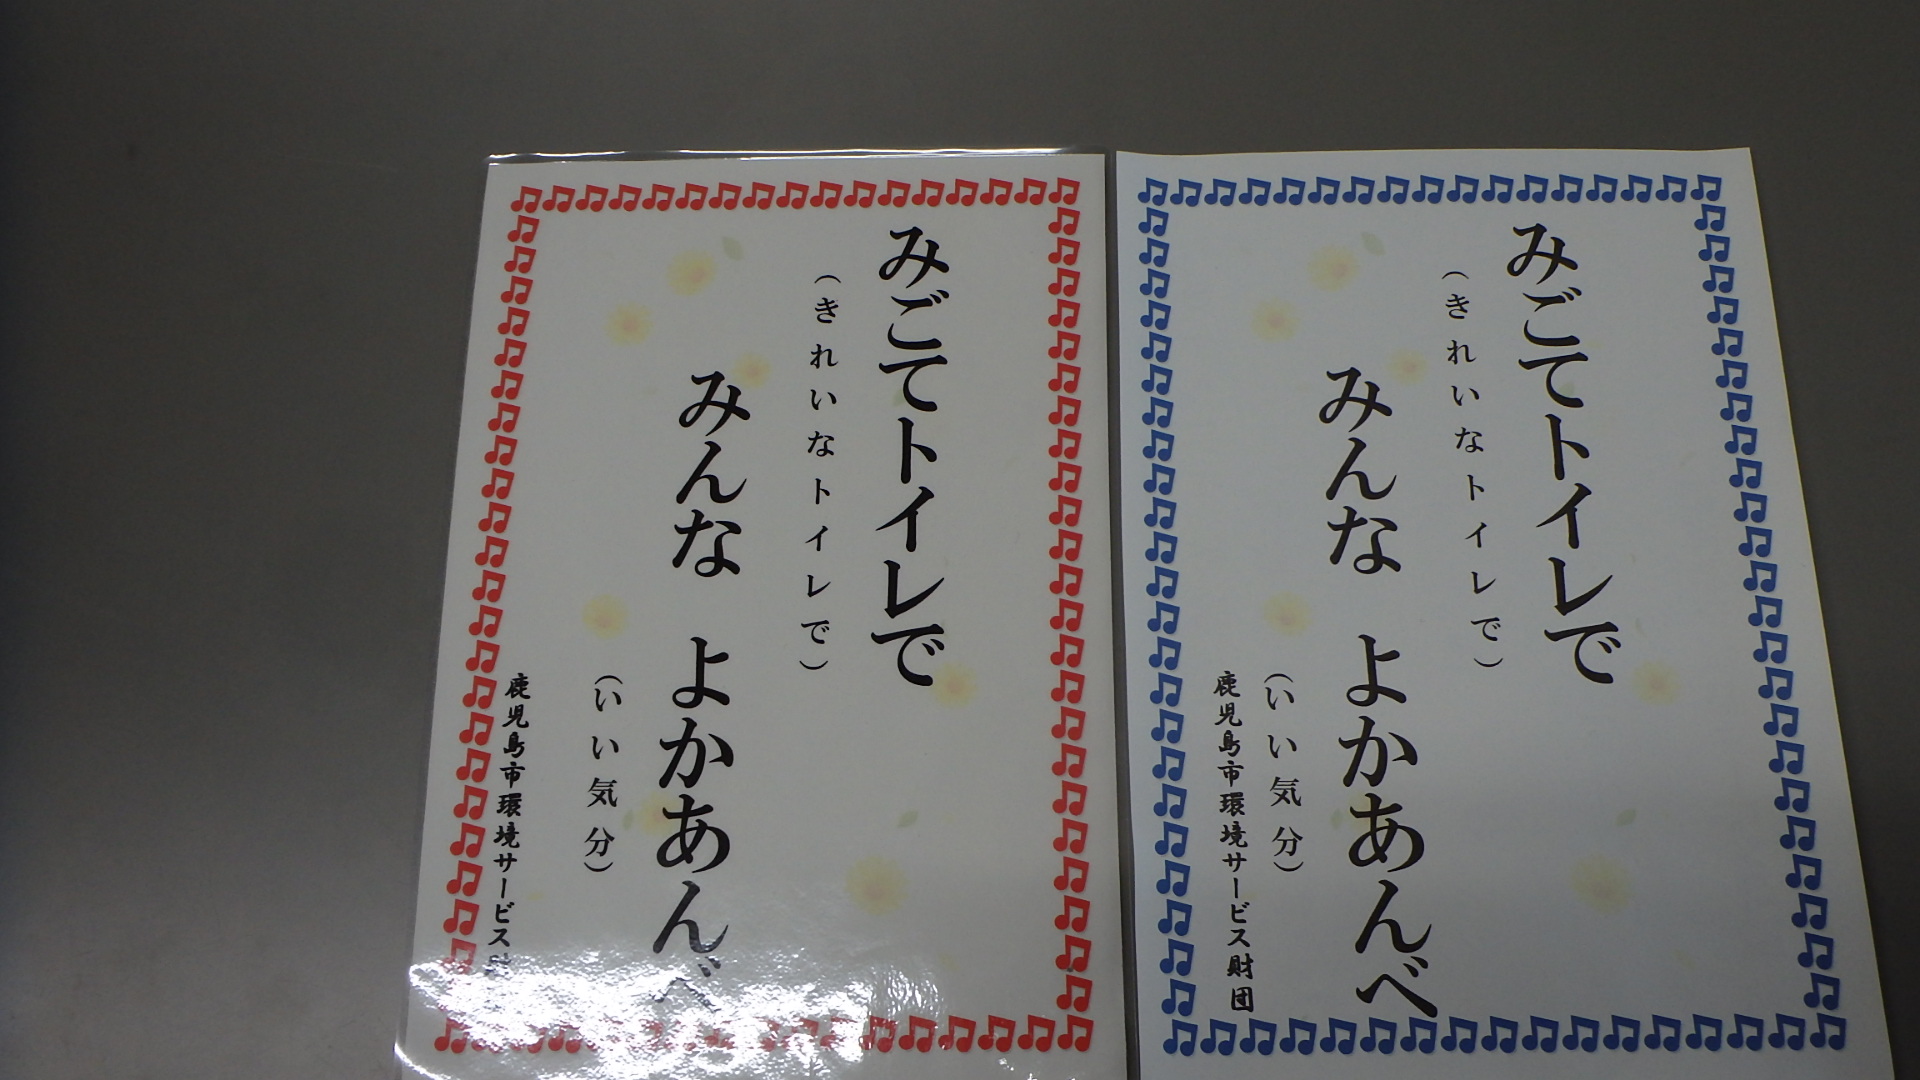 みごてトイレで
（きれいなトイレで）
みんな よかあんべ
（いい気分）
鹿児島市環境サービス財団
みごてトイレで
（きれいなトイレで）
みんな よかあんべ
（いい気分）
鹿児島市環境サービス財